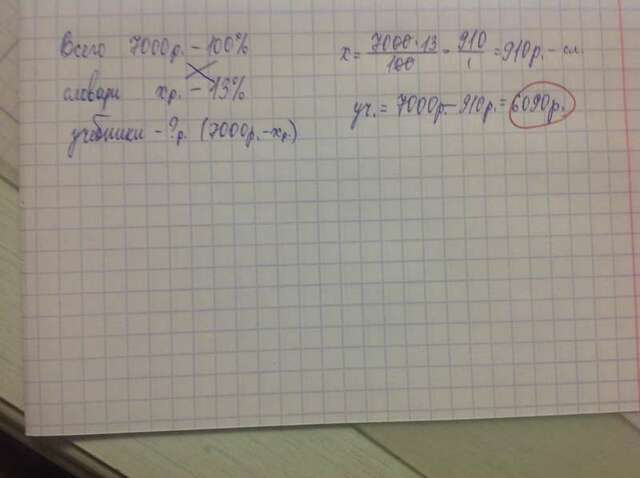 Всего 7000р. – 100%
словари хр. – 13%
учебники – ?р. (7000р. – хр.)
х = 7000 · 13 / 100 = 910 / 1 = 910р. – сл.
уч. = 7000р. – 910р. = 6090р.